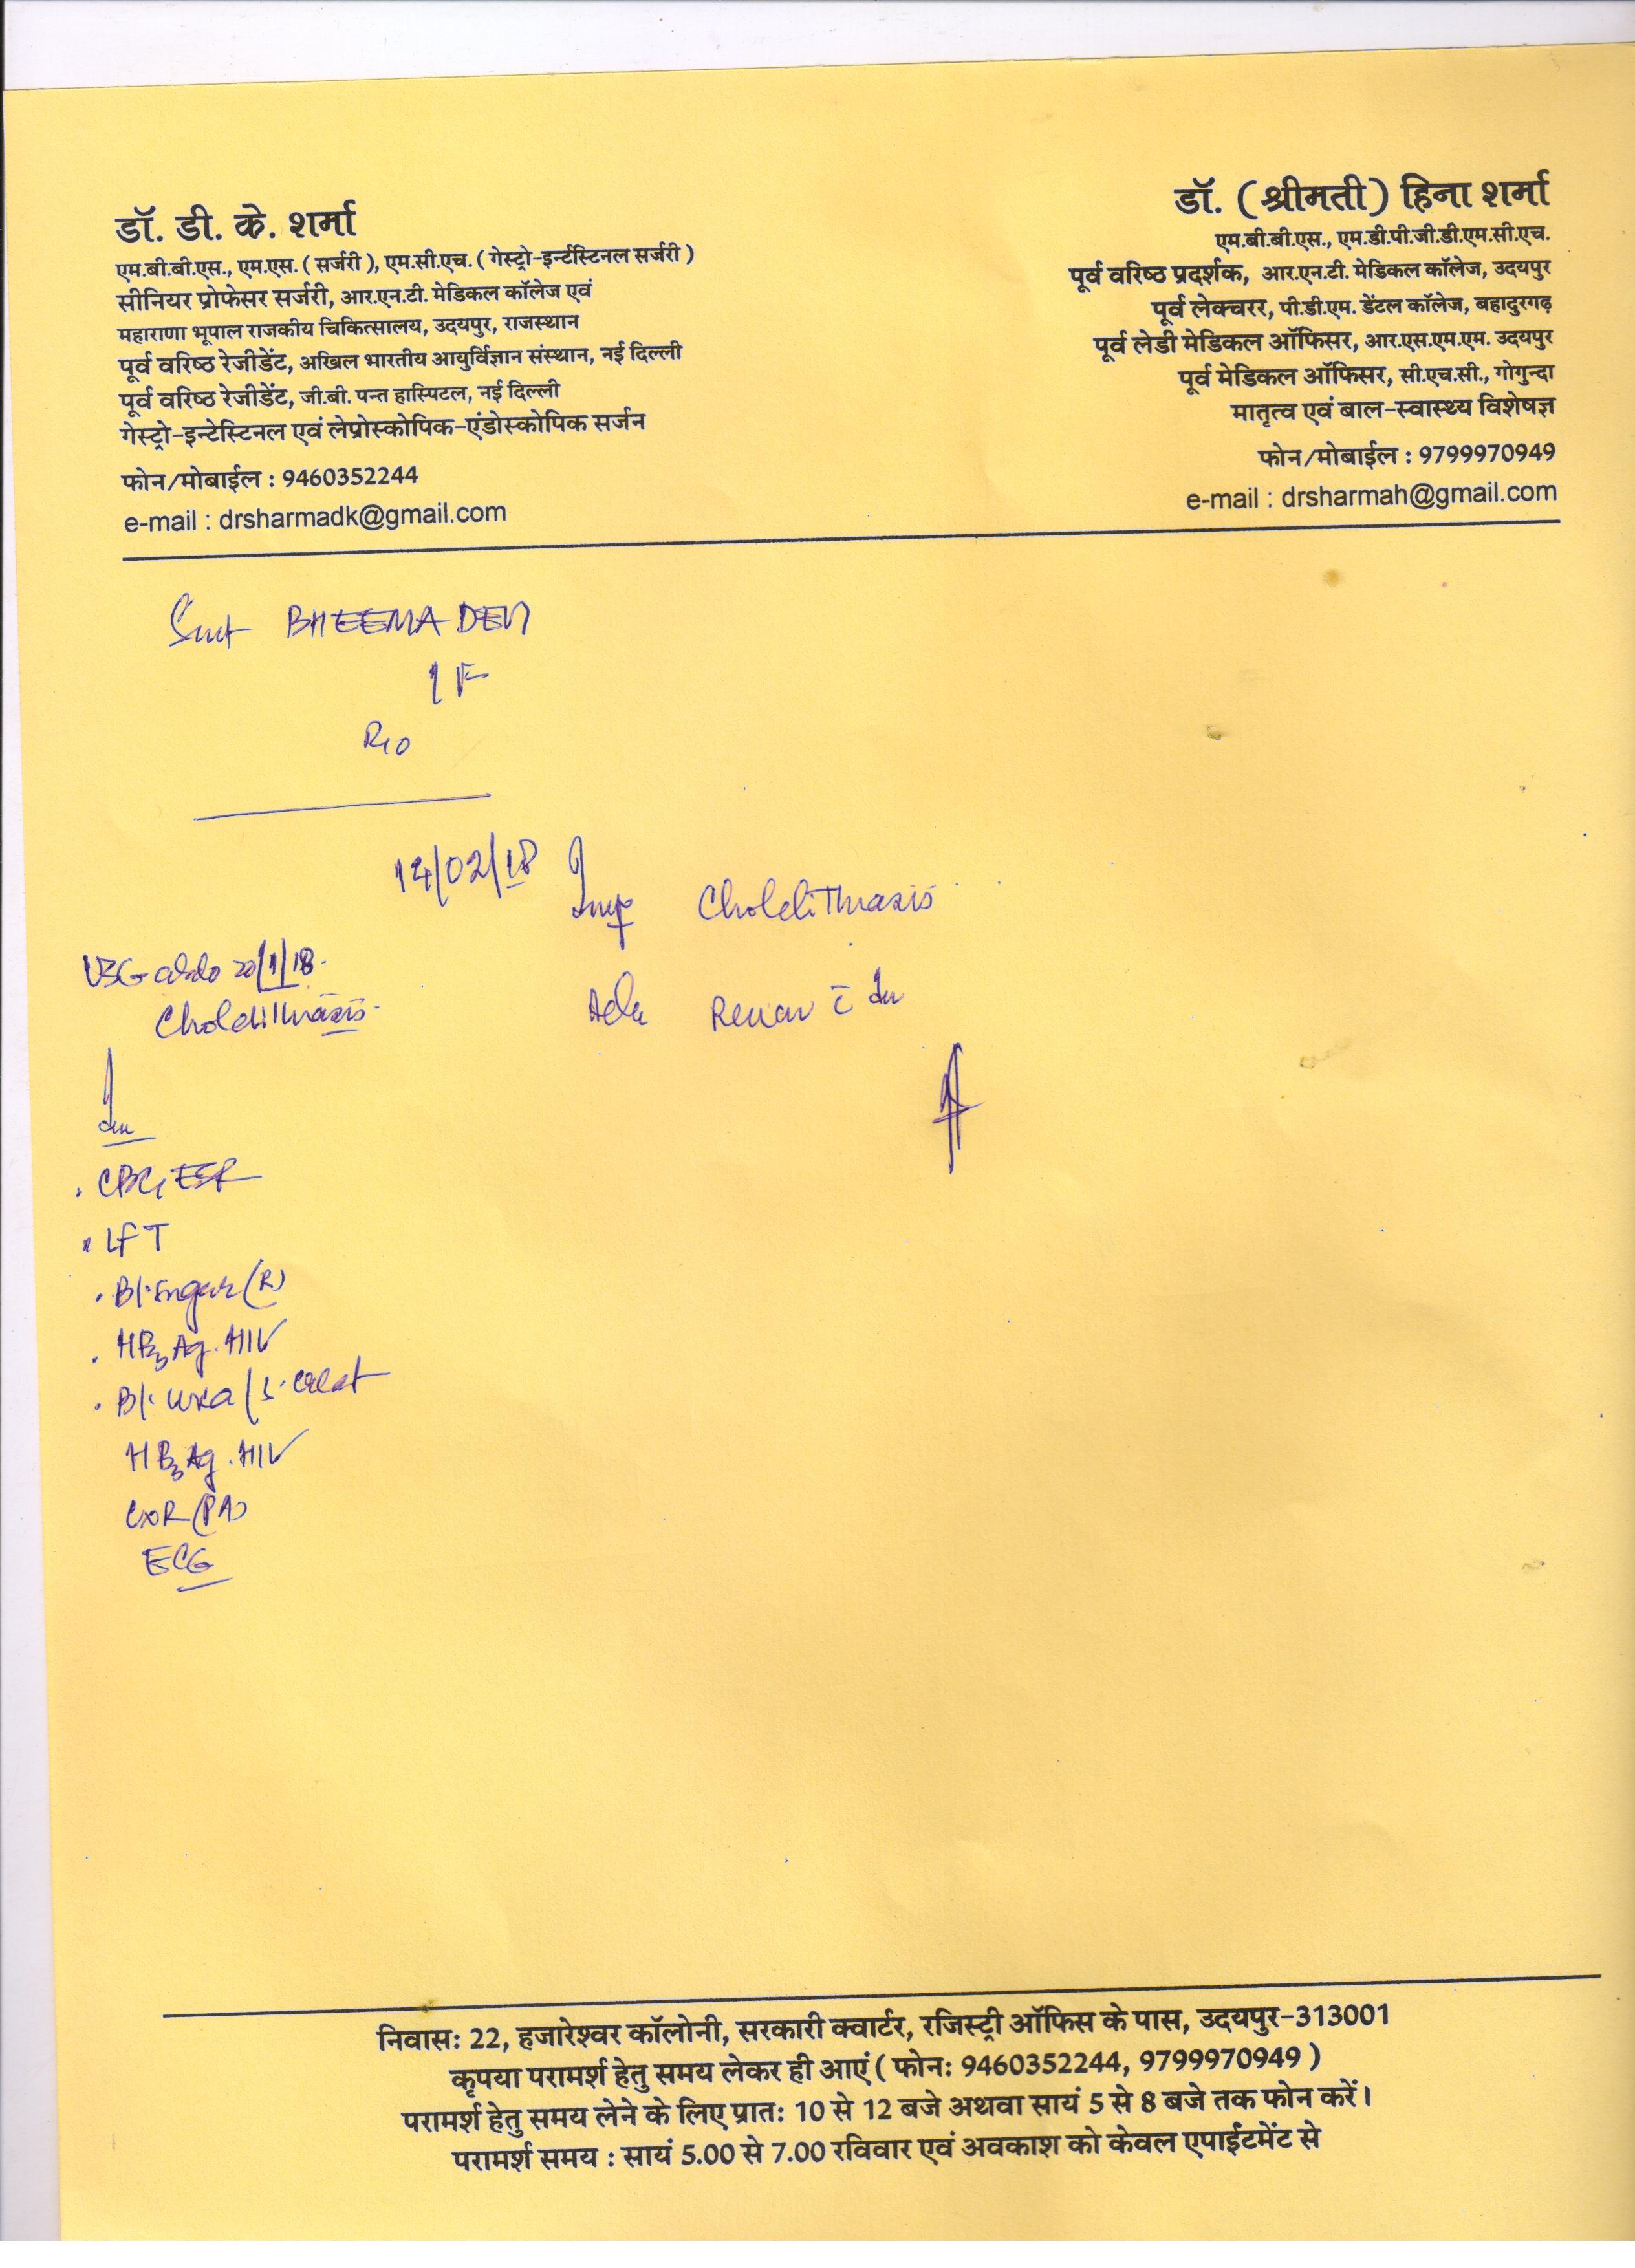 डॉ. डी. के. शर्मा
एम.बी.बी.एस., एम.एस. ( सर्जरी ), एम.सी.एच. ( गेस्ट्रो-इन्टेस्टिनल सर्जरी )
सीनियर प्रोफेसर सर्जरी, आर.एन.टी. मेडिकल कॉलेज एवं
महाराणा भूपाल राजकीय चिकित्सालय, उदयपुर, राजस्थान
पूर्व वरिष्ठ रेजीडेंट, अखिल भारतीय आयुर्विज्ञान संस्थान, नई दिल्ली
पूर्व वरिष्ठ रेजीडेंट, जी.बी. पन्त हास्पिटल, नई दिल्ली
गेस्ट्रो-इन्टेस्टिनल एवं लेप्रोस्कोपिक-एंडोस्कोपिक सर्जन
फोन/मोबाईल : 9460352244
e-mail : drsharmadk@gmail.com
डॉ. ( श्रीमती ) हिना शर्मा
एम.बी.बी.एस., एम.डी.पी.जी.डी.एम.सी.एच.
पूर्व वरिष्ठ प्रदर्शक, आर.एन.टी. मेडिकल कॉलेज, उदयपुर
पूर्व लेक्चरर, पी.डी.एम. डेंटल कॉलेज, बहादुरगढ़
पूर्व लेडी मेडिकल ऑफिसर, आर.एस.एम.एम. उदयपुर
पूर्व मेडिकल ऑफिसर, सी.एच.सी., गोगुन्दा
मातृत्व एवं बाल-स्वास्थ्य विशेषज्ञ
फोन/मोबाईल : 9799970949
e-mail : drsharmah@gmail.com
Smt BHEEMA DEVI
/ F
R/o
14/02/18
Imp Cholelithiasis
Adv Review c̄ Inv
USG abdo 20/1/18.
Cholelithiasis.
Inv
. CBC, ESR
. LFT
. Bl. Sugar (R)
. HBsAg. HIV
. Bl. urea / S. creat
HBsAg. HIV
CXR (PA)
ECG
निवास: 22, हजारेश्वर कॉलोनी, सरकारी क्वार्टर, रजिस्ट्री ऑफिस के पास, उदयपुर-313001
कृपया परामर्श हेतु समय लेकर ही आएं ( फोन: 9460352244, 9799970949 )
परामर्श हेतु समय लेने के लिए प्रात: 10 से 12 बजे अथवा सायं 5 से 8 बजे तक फोन करें।
परामर्श समय : सायं 5.00 से 7.00 रविवार एवं अवकाश को केवल एपाईंटमेंट से